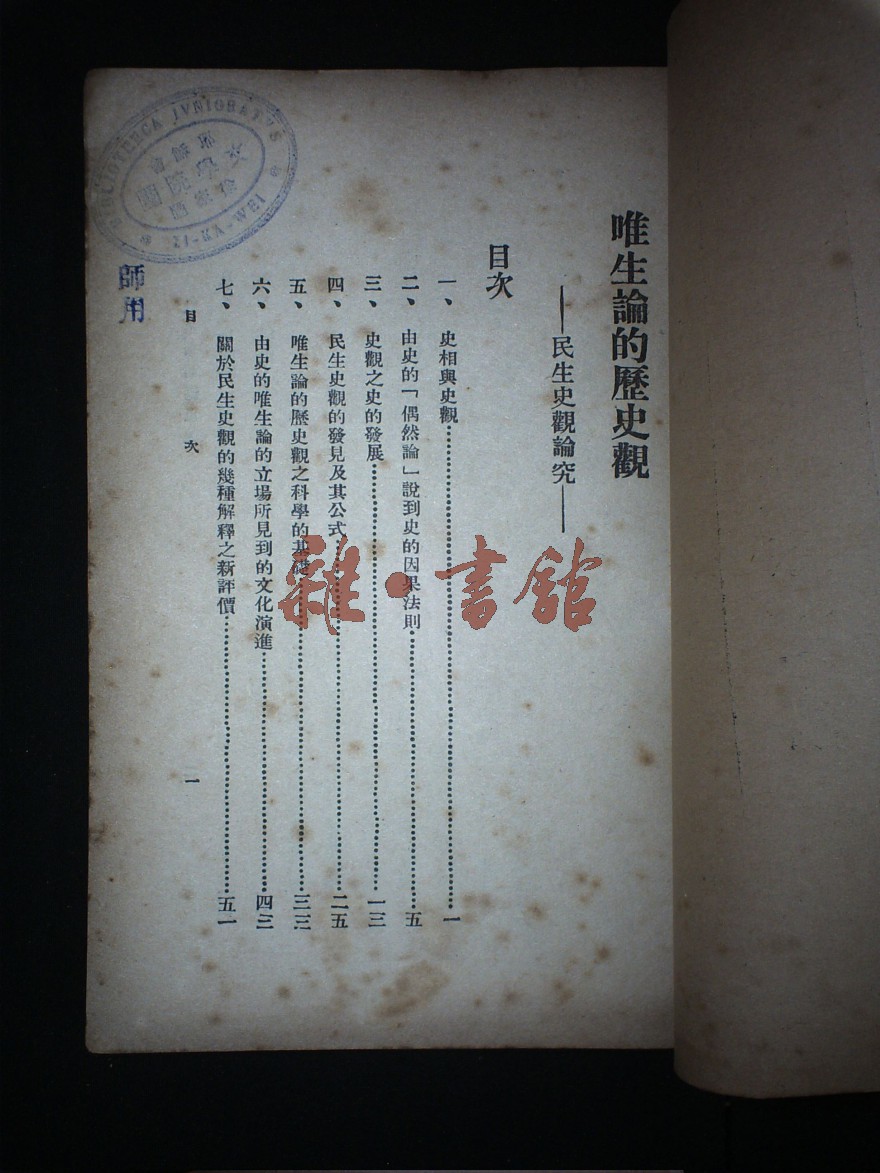 唯生論的歷史觀
——民生史觀論究——
目次
一、 史相與史觀……一
二、 由史的「偶然論」說到史的因果法則……五
三、 史觀之史的發展……一三
四、 民生史觀的發見及其公式……二五
五、 唯生論的歷史觀之科學的基礎……三三
六、 由史的唯生論的立場所見到的文化演進……四三
七、 關於民生史觀的幾種解釋之新評價……五一
目次 一
BIBLIOTHECA IVNIORATVS
ZI-KA-WEI
師用
雜·書館